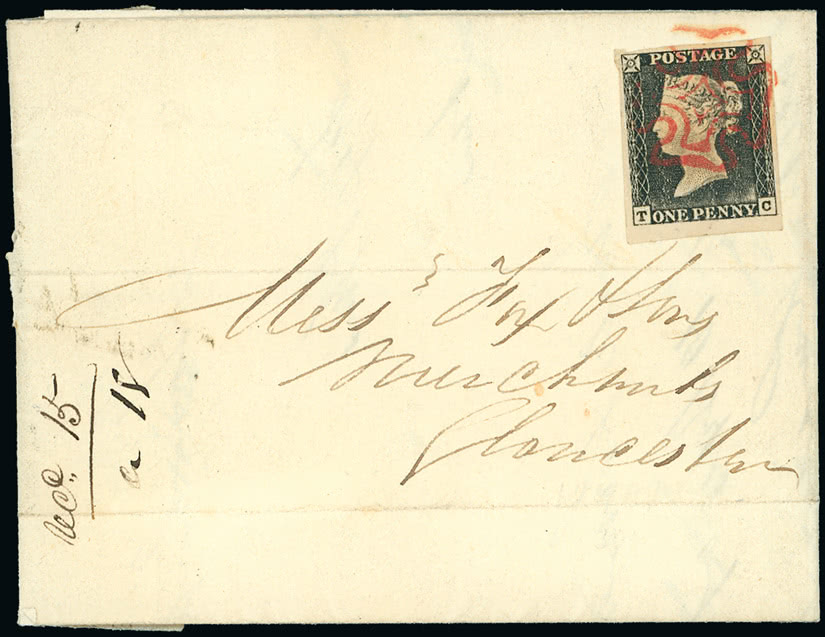 POSTAGE
T ONE PENNY C
Mess.rs Fox & Sons
Merchants
Gloucester
recd. 15
a 18